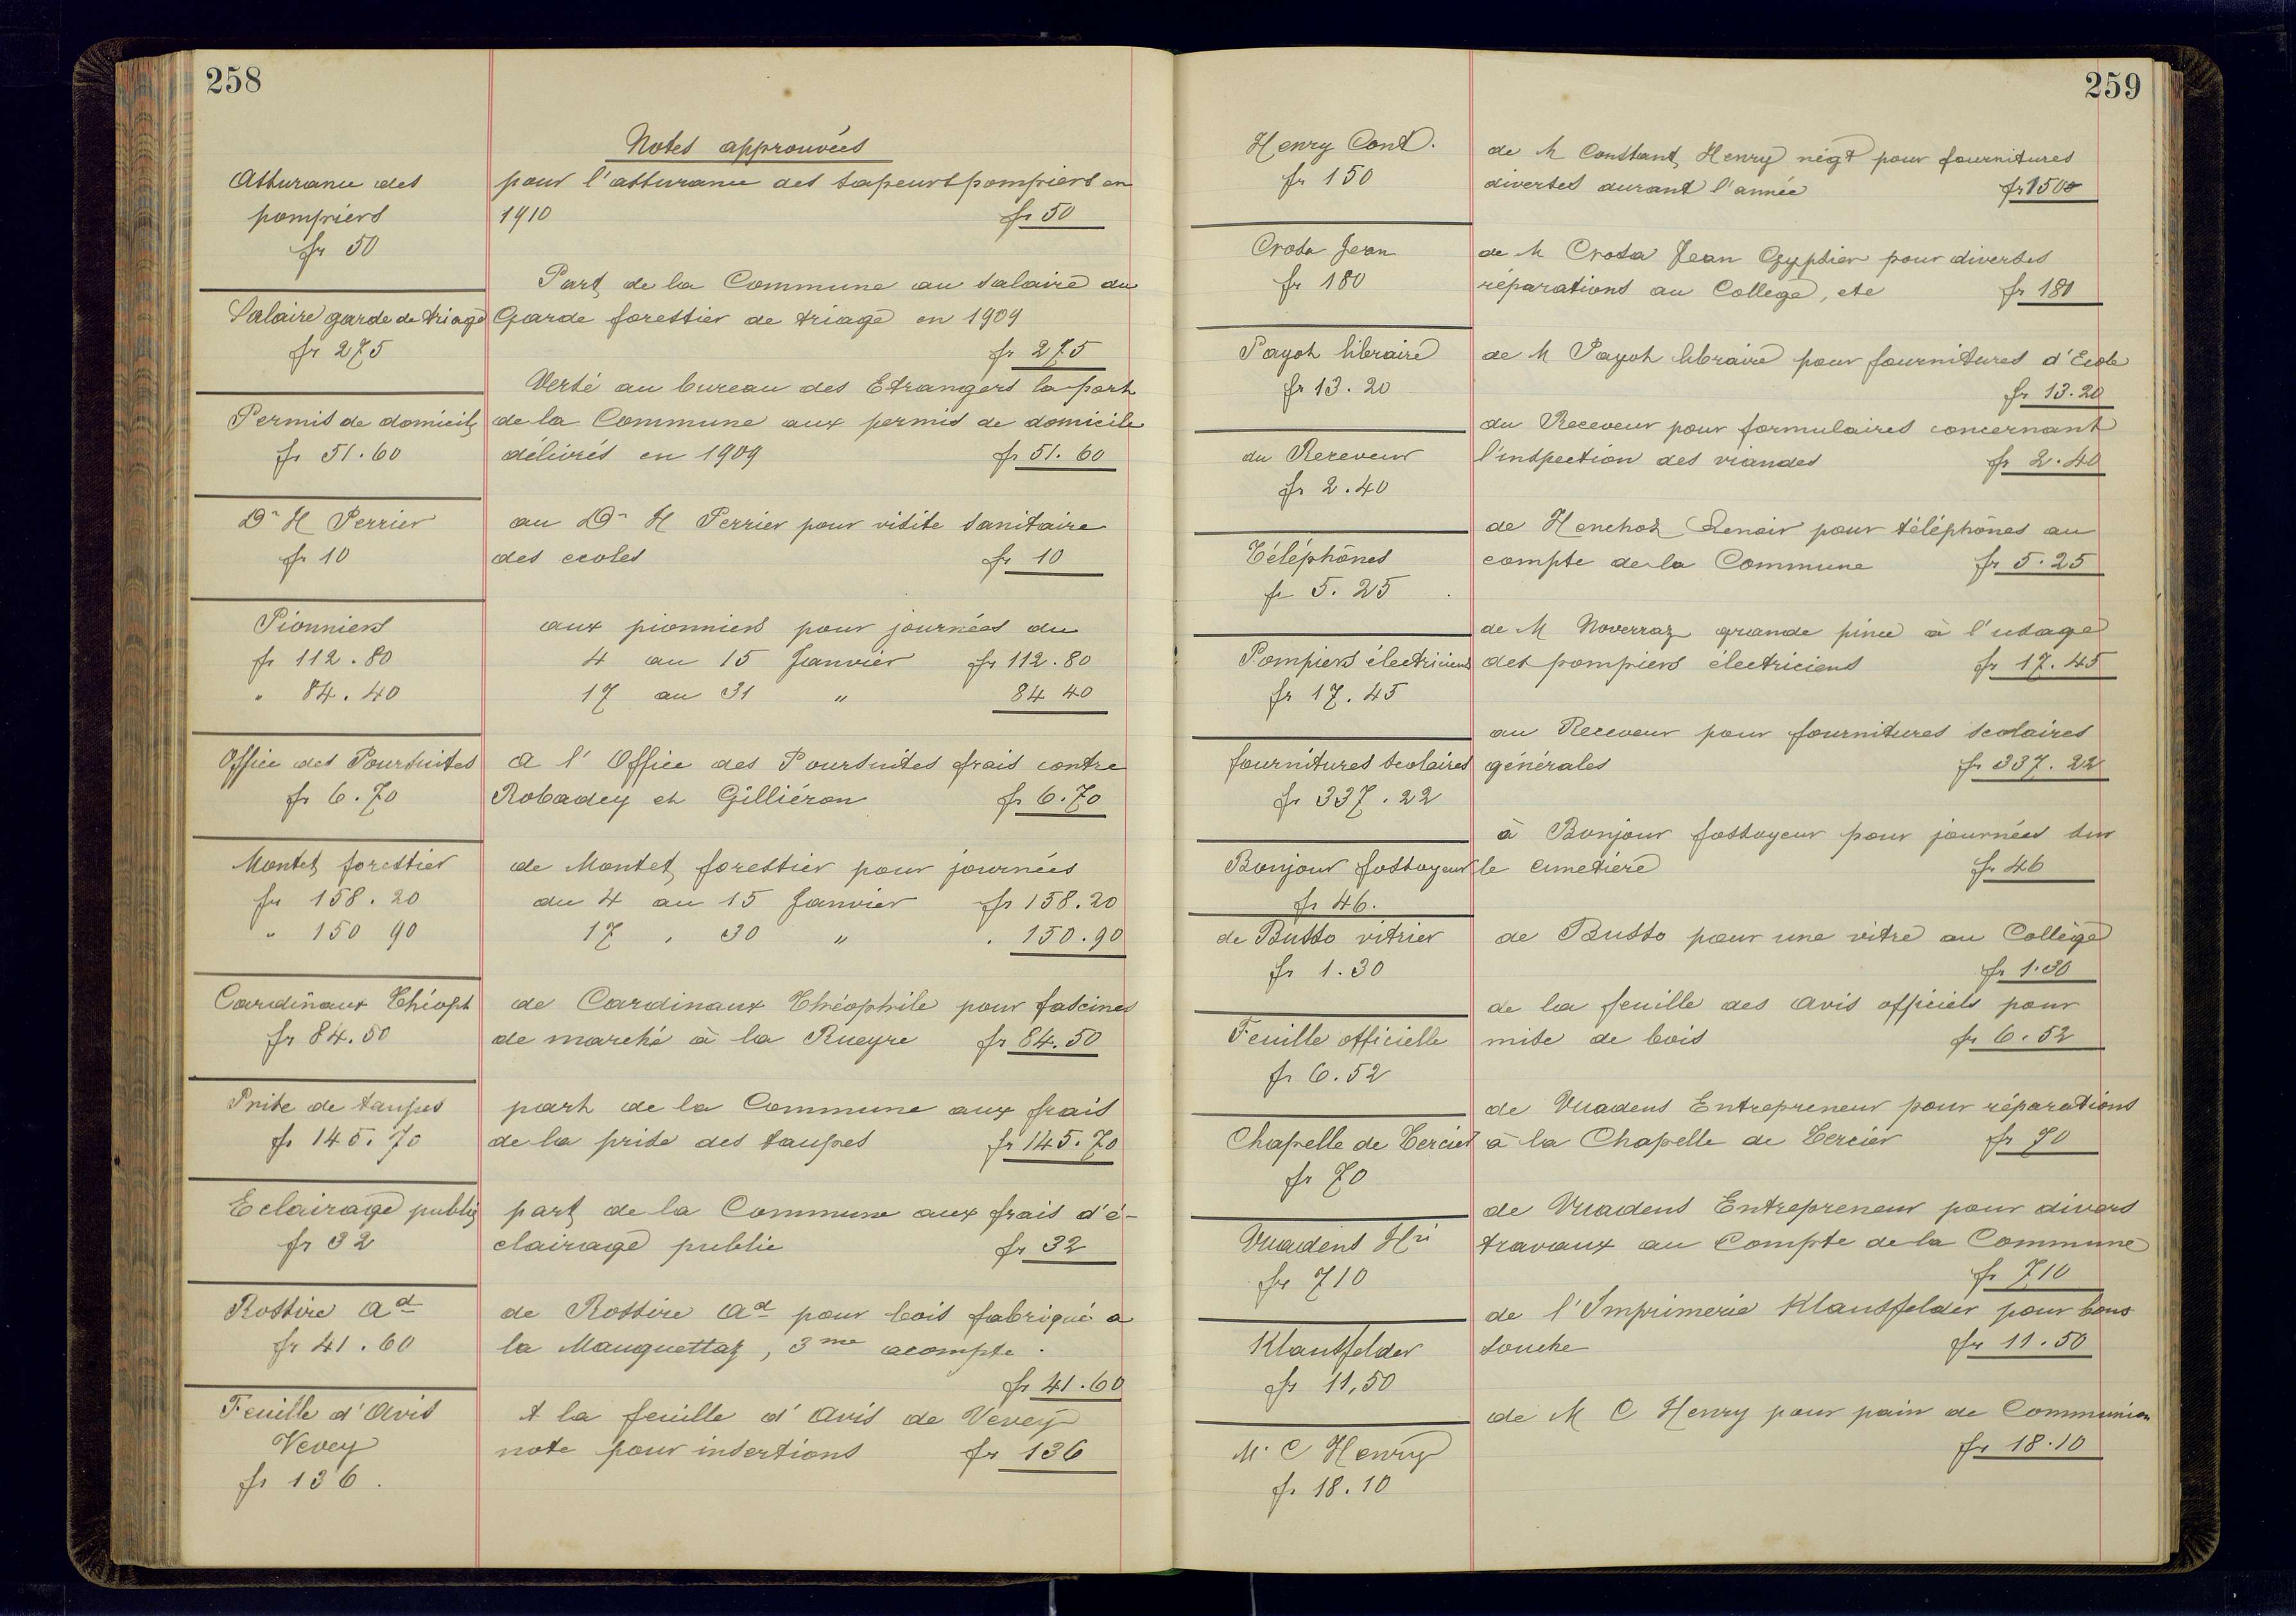 258
Notes approuvées
Assurance des
pompiers
fr 50
pour l'assurance des sapeurs pompiers en
1910 fr 50
Salaire garde de triage
fr 275
Part de la Commune au salaire du
Garde forestier de triage en 1909
fr 275
Permis de domicile
fr 51.60
Versé au bureau des Etrangers la part
de la Commune aux permis de domicile
délivrés en 1909 fr 51.60
Dr H Perrier
fr 10
au Dr H Perrier pour visite sanitaire
des ecoles fr 10
Pionniers
fr 112.80
" 84.40
aux pionniers pour journées du
4 au 15 Janvier fr 112.80
17 au 31 " 84 40
Office des Poursuites
fr 6.70
A l'Office des Poursuites frais contre
Robadey et Gilliéron fr 6.70
Montet forestier
fr 158.20
" 150 90
de Montet forestier pour journées
du 4 au 15 Janvier fr 158.20
17 " 30 " " 150.90
Cardinaux Théoph
fr 84.50
de Cardinaux Théophile pour fascines
de marché à la Rueyre fr 84.50
Prise de taupes
fr 145.70
part de la Commune aux frais
de la prise des taupes fr 145.70
Eclairage public
fr 32
part de la Commune aux frais d'é-
clairage public fr 32
Rossire Ad
fr 41.60
de Rossire Ad pour bois fabriqué a
la Mauguettaz, 3me acompte.
fr 41.60
Feuille d'Avis
Vevey
fr 136.
A la feuille d'Avis de Vevey
note pour insertions fr 136
259
Henry Const.
fr 150
de M Constant Henry négt pour fournitures
diverses durant l'année fr 150
Crosa Jean
fr 180
de M Crosa Jean Gypsier pour diverses
réparations au College, etc fr 180
Payot libraire
fr 13.20
de M Payot libraire pour fournitures d'Ecole
fr 13.20
du Receveur
fr 2.40
du Receveur pour formulaires concernant
l'inspection des viandes fr 2.40
Téléphones
fr 5.25
de Henchoz Lenoir pour téléphônes au
compte de la Commune fr 5.25
Pompiers électriciens
fr 17.45
de M Noverraz grande pince à l'usage
des pompiers électriciens fr 17.45
fournitures scolaires
fr 337.22
au Receveur pour fournitures scolaires
générales fr 337.22
Bonjour fossoyeur
fr 46.
à Bonjour fossoyeur pour journées sur
le cimetière fr 46
de Busso vitrier
fr 1.30
de Busso pour une vitre au Collège
fr 1.30
Feuille officielle
fr 6.52
de la feuille des avis officiels pour
mise de bois fr 6.52
Chapelle de Tercier
fr 70
de Vuadens Entrepreneur pour réparations
à la Chapelle de Tercier fr 70
Vuadens Hri
fr 710
de Vuadens Entrepreneur pour divers
travaux au Compte de la Commune
fr 710
Klausfelder
fr 11,50
de l'Imprimerie Klausfelder pour bons
souche fr 11.50
M. C Henry
fr 18.10
de M C Henry pour pain de Communion
fr 18.10